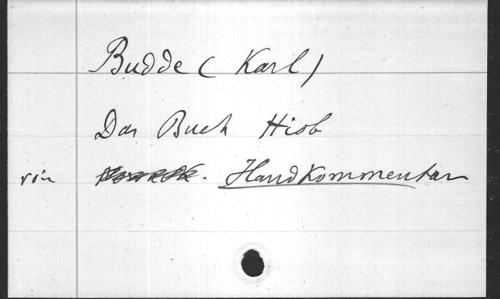 Budde (Karl)
Das Buch Hiob
vín Nowack. Handkommentar